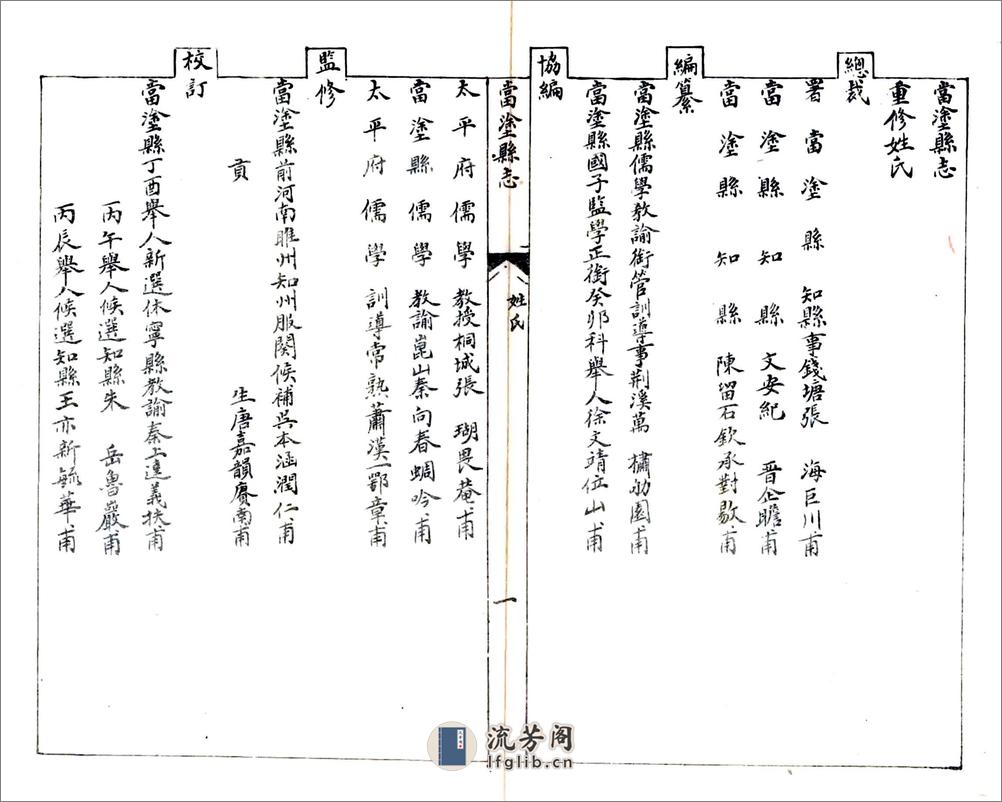 當塗縣志
重修姓氏
總裁
署當塗縣知縣事錢塘張海巨川甫
當塗縣知縣文安紀晉企瞻甫
當塗縣知縣陳留石欽承對敭甫
編纂
當塗縣儒學教諭銜管訓導事荊溪萬橚劬園甫
當塗縣國子監學正銜癸卯科舉人徐文靖位山甫
協編
當塗縣志
姓氏
一
太平府儒學教授桐城張瑚畏菴甫
當塗縣儒學教諭崑山秦向春蜩吟甫
太平府儒學訓導常熟蕭漢一鄂章甫
監修
當塗縣前河南睢州知州服闋候補吳本涵潤仁甫
貢生唐嘉韻賡南甫
校訂
當塗縣丁酉舉人新選休寧縣教諭秦上達義扶甫
丙午舉人候選知縣朱岳魯巖甫
丙辰舉人候選知縣王亦新毓華甫
流芳阁
lfglib.cn